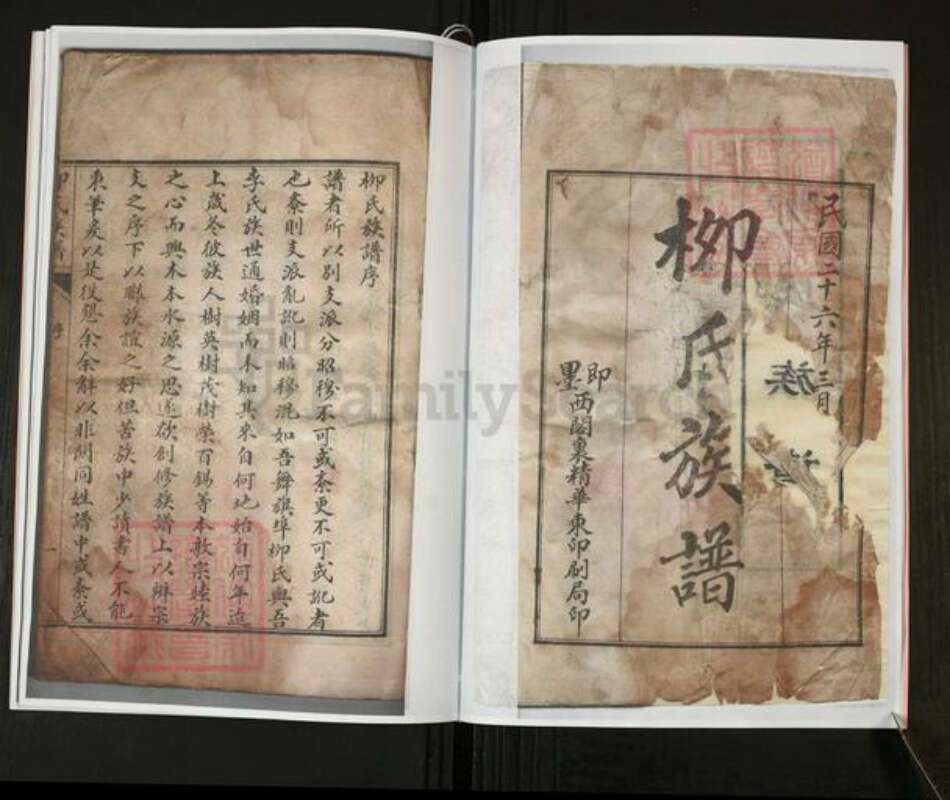 民國二十六年三月
柳氏族譜
即墨西關裏精華東印刷局印
族
柳氏族譜序
譜者所以別支派分昭穆不可或紊更不可或訛者
也紊則支派亂訛則昭穆混如吾舞旗埠柳氏與吾
李氏族世通婚姻而未知其來自何地始自何年迨
上歲冬彼族人樹英樹茂樹榮百錫等本敦宗睦族
之心而興木本水源之思遂欲創修族譜上以辦宗
支之序下以聯族誼之好但苦族中少讀書人不能
秉筆爰以是役懇余余辭以非關同姓譜中或紊或
序
一
FamilySearch